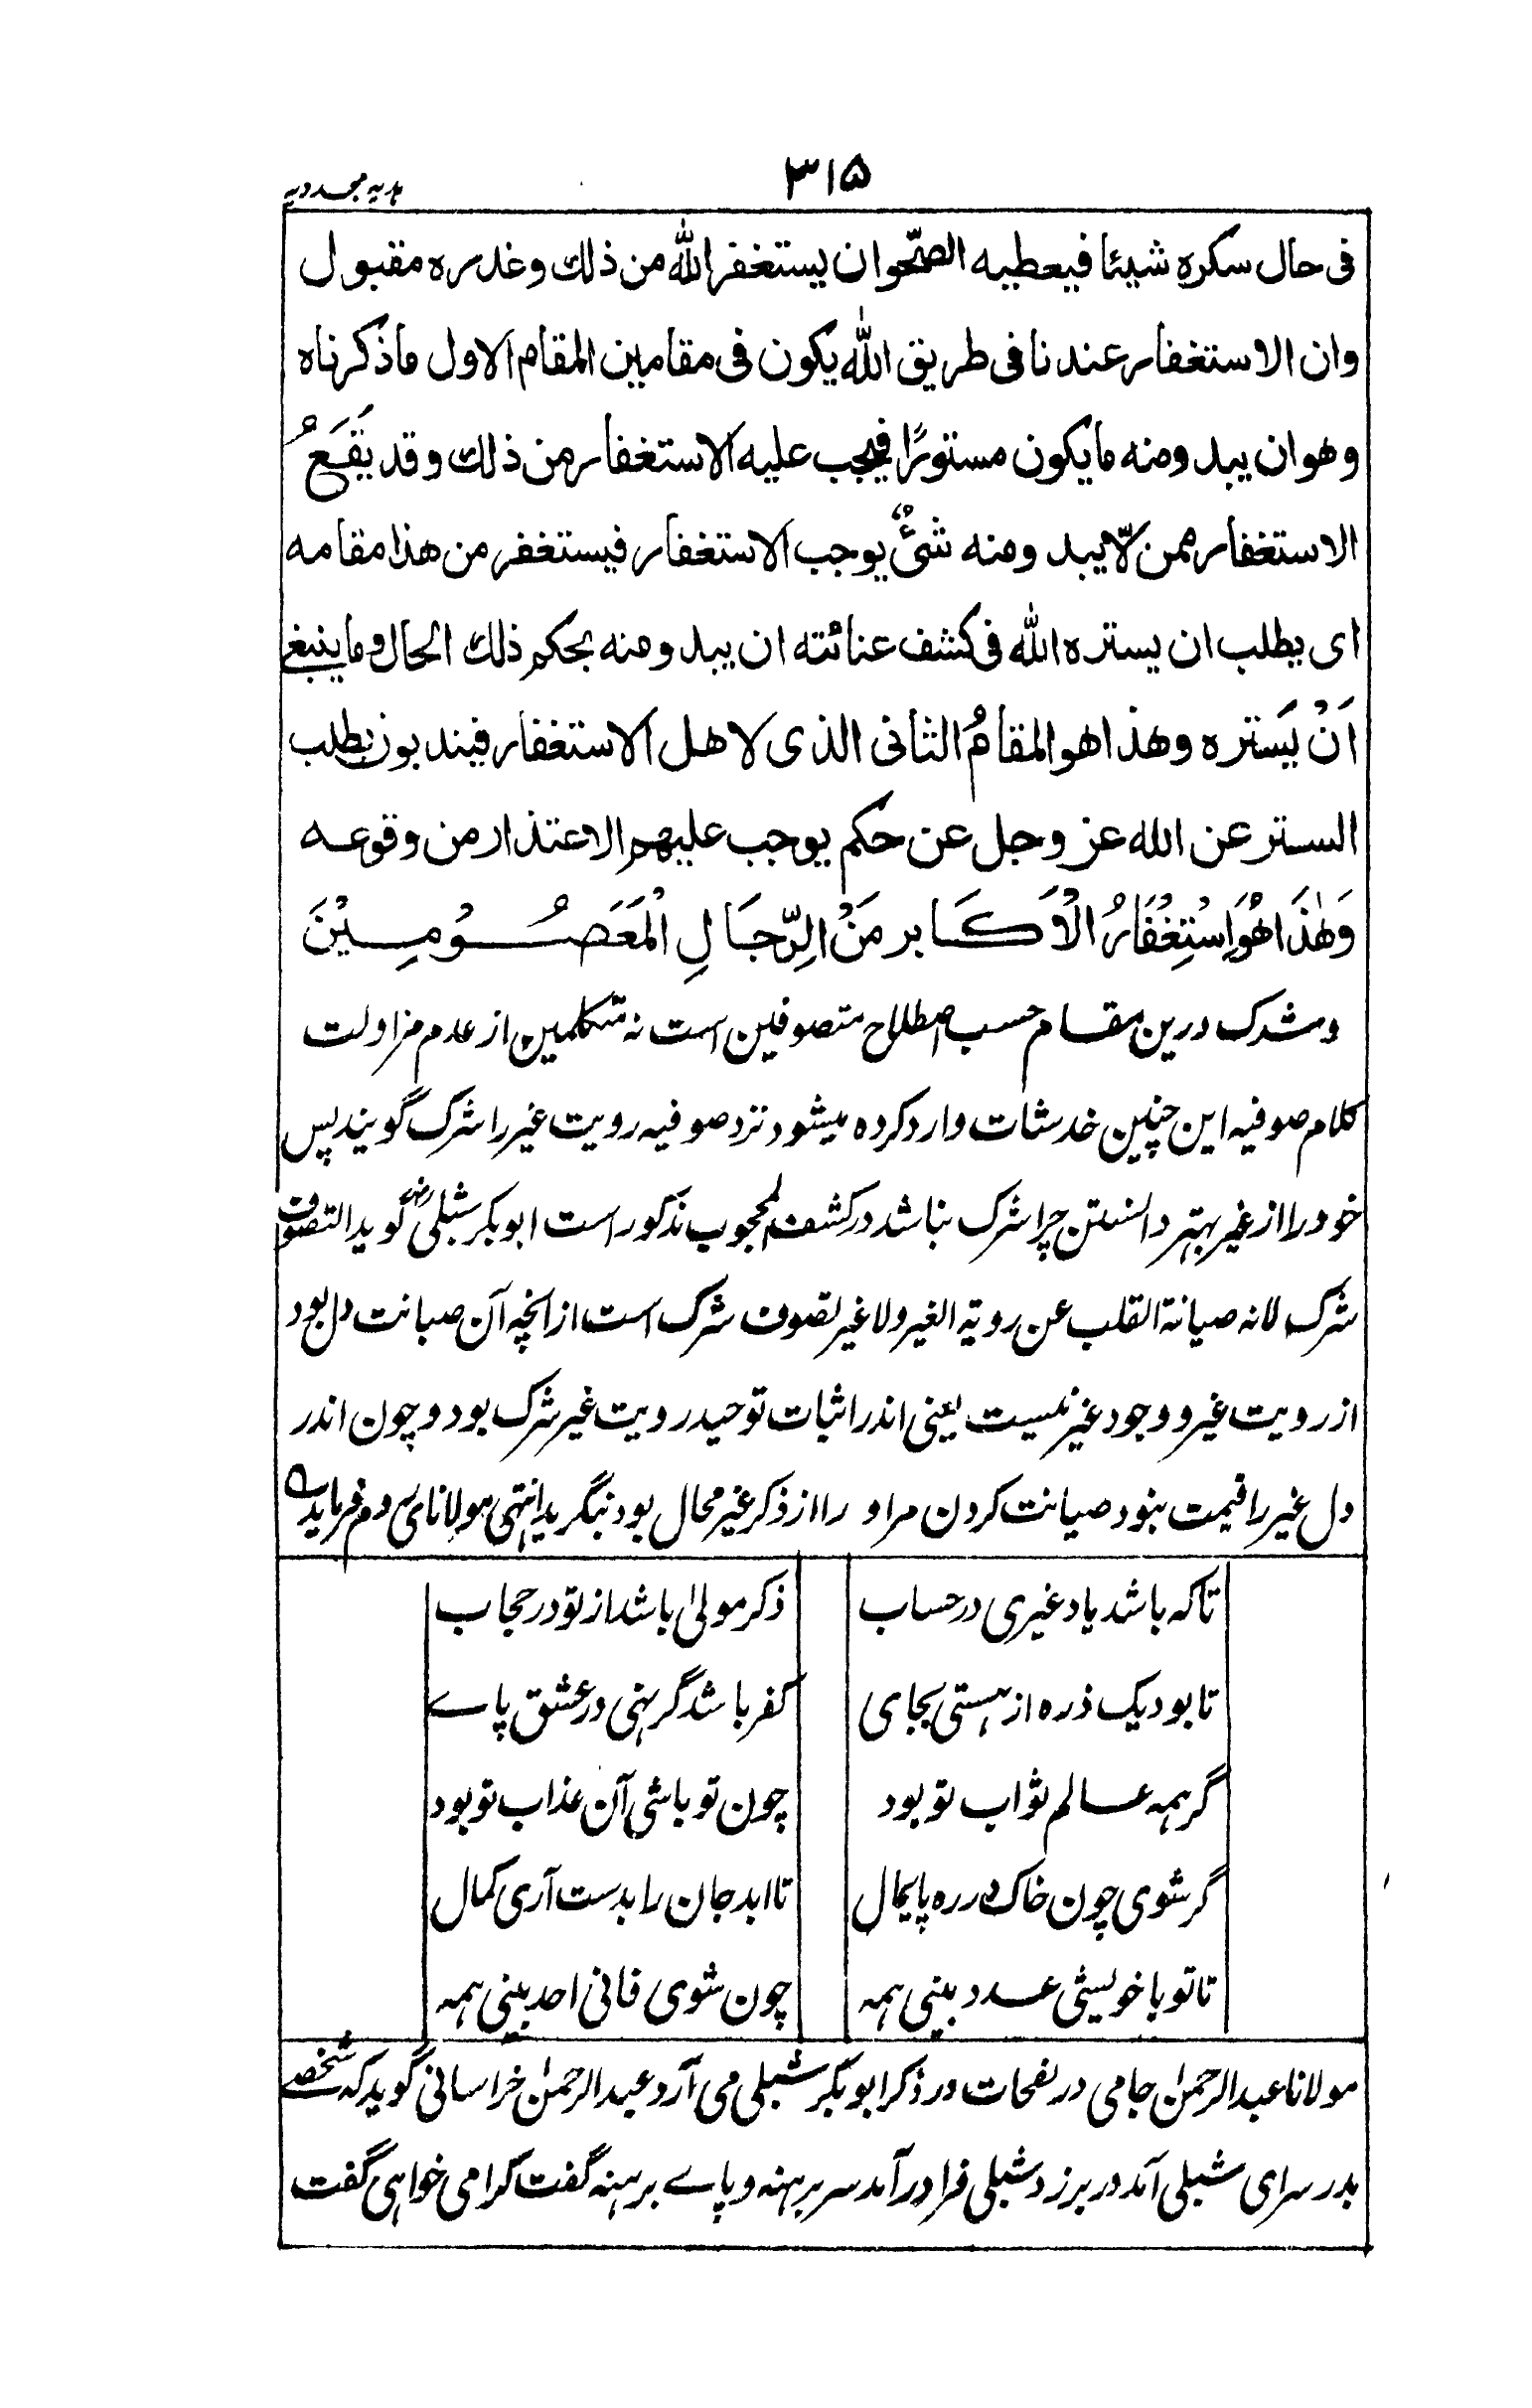 ۳۱۵
ہدیہ مجددیہ
فی حال سکرہ شیئا فیعطیہ الصّحوان یستغفر اللّٰہ من ذلک وعذرہ مقبول
وان الاستغفار عندنا فی طریق اللّٰہ یکون فی مقامین المقام الاول ماذکرناہ
وھوان یبد ومنہ مایکون مستورًا فیجب علیہ الاستغفار من ذلک وقد یَقَعُ
الاستغفار ممن لّایبد ومنہ شئٌ یوجب الاستغفار فیستغفر من ھذا مقامہ
ای یطلب ان یسترہ اللّٰہ فی کشف عنائتہ ان یبد ومنہ بحکم ذلک الحال وماینبغی
اَنْ یَّسترہ وھذا ھو المقامُ الثانی الذی لاھل الاستغفار فیند بون بطلب
الستر عن اللہ عز وجل عن حکم یوجب علیھم الاعتذار من وقوعہ
وَھٰذَا ھُوَ اِسْتِغْفَارُ الْاَکَابر مَنْ الرِّجَالِ الْمَعَصُوْمِیْنَ
ومشرک درین مقام حسب اصطلاح متصوفین است نہ متکلمین از عدم مزاولت
کلام صوفیہ این چنین خدشات وارد کردہ میشود نزد صوفیہ رویت غیر را شرک گویند پس
خود را از غیر بہتر دانستن چرا شرک نباشد در کشف المحجوب مذکور است ابوبکر شبلیؒ گوید التصوف
شرک لانہ صیانۃ القلب عن رویۃ الغیر ولا غیر تصوف شرک است از انچہ آن صیانت دل بود
از رویت غیر و وجود غیر نیست یعنی اندر اثبات توحید رویت غیر شرک بود و چون اندر
دل غیر را قیمت نبود صیانت کردن مراو را از ذکر غیر محال بود نبگرید انتہی مولانای روم فرماید
تاکہ باشد یاد غیری در حساب ذکر مولیٰ باشد از تو در حجاب
تا بود یک ذرہ از ہستی بجای کفر باشد گر نہی در عشق پاے
گر ہمہ عالم ثواب تو بود چون تو باشی آن عذاب تو بود
گر شوی چون خاک در رہ پایمال تا ابد جان را بدست آری کمال
تا تو با خویشی عدد بینی ہمہ چون شوی فانی احد بینی ہمہ
مولانا عبدالرحمٰن جامی در نفحات در ذکر ابوبکر شبلی می آرد عبدالرحمٰن خراسانی گوید کہ شخصے
بدر سرای شبلی آمد در بزد شبلی فرا در آمد سر برہنہ و پاے برہنہ گفت کرامی خواہی گفت